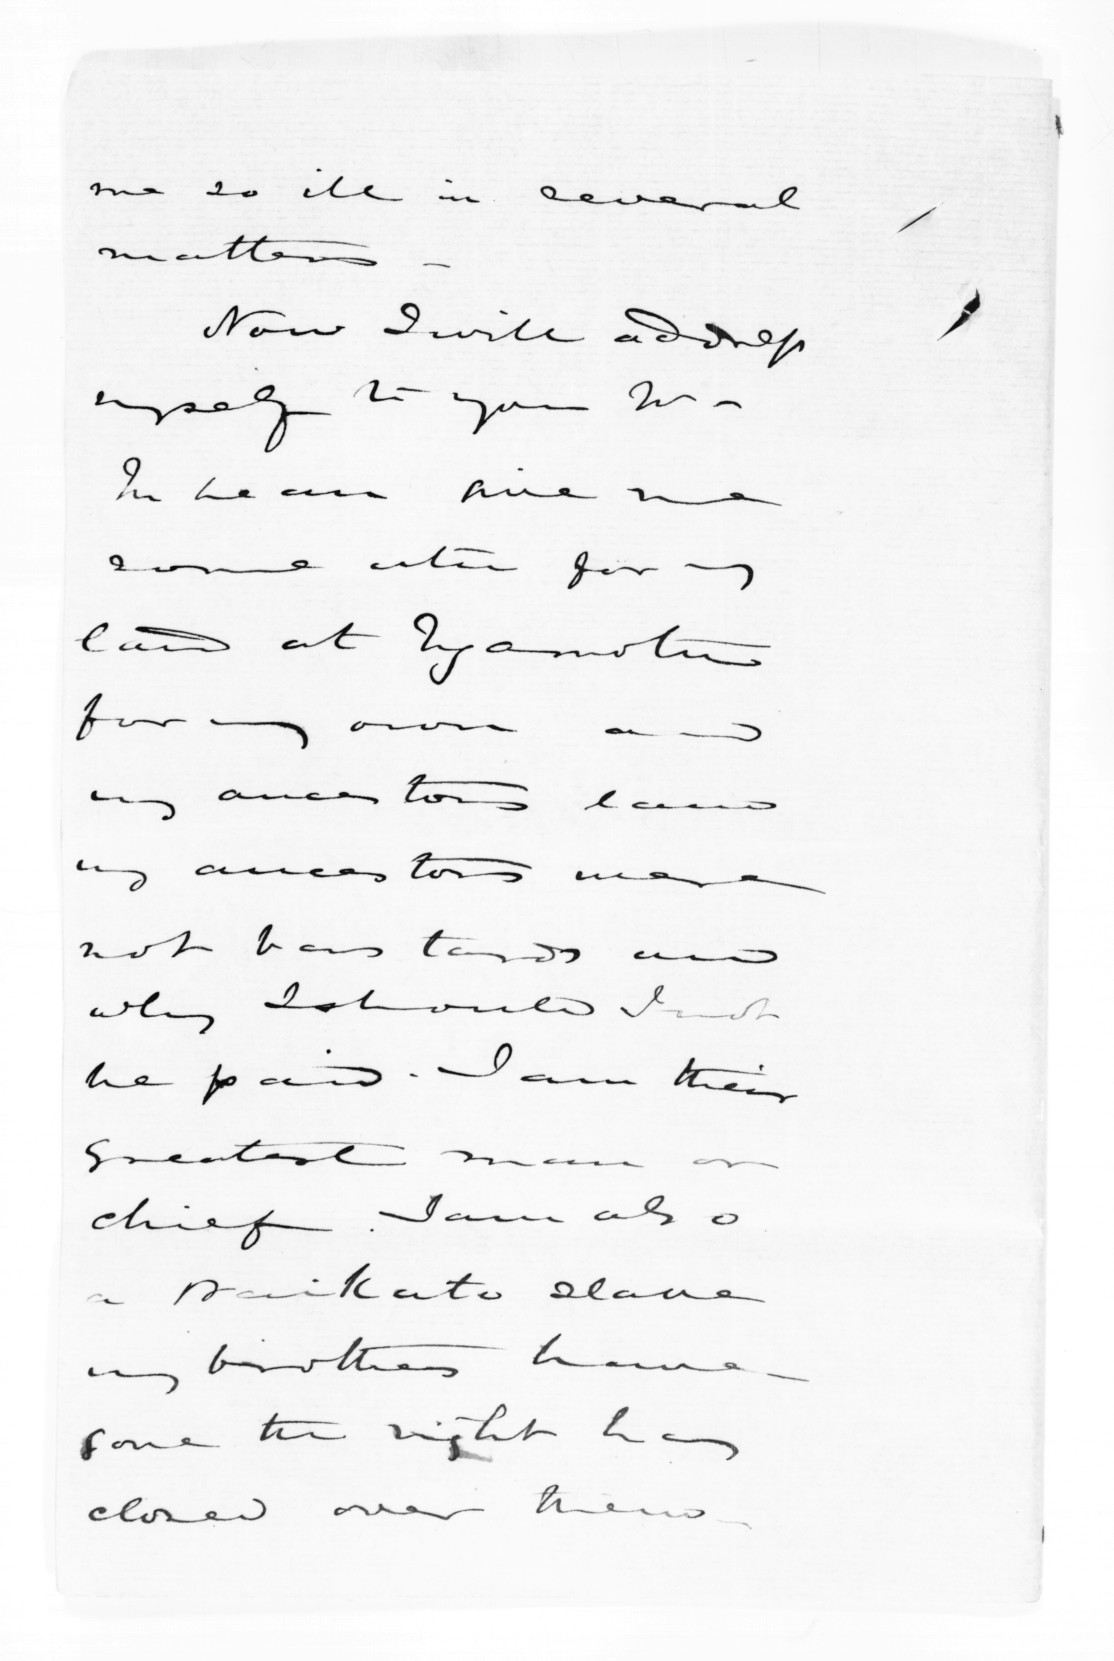 me so ill in several
matters -
Now I will address
myself to you Mr -
McLean give me
some utu for my
land at Ngamotu
for my own and
my ancestors land
my ancestors were
not bastards and
why should I not
be paid. I am their
greatest man or
chief. I am also
a Waikato slave
my brothers have
gone the night has
closed over them -